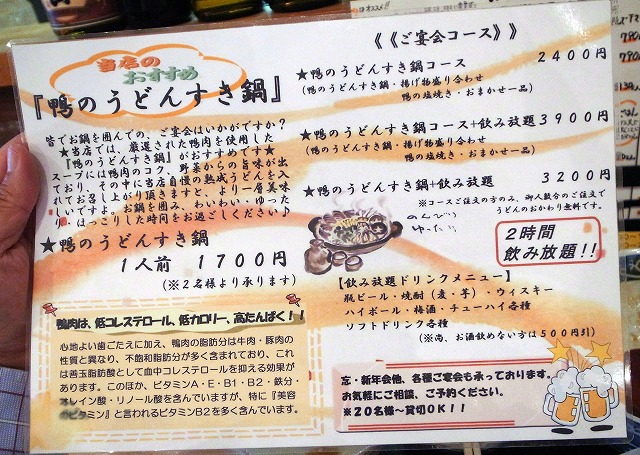 当店の
おすすめ
『鴨のうどんすき鍋』
皆でお鍋を囲んでの、ご宴会はいかがですか？
★当店では、厳選された鴨肉を使用した
『鴨のうどんすき鍋』がおすすめです★
スープには鴨肉のコク、野菜からの旨味が出
ており、その中に当店自慢の熟成うどんを入
れてお召し上がり頂きますと、より一層美味
しいですよ。お鍋を囲み、わいわい・ゆった
り・ほっこりした時間をお過ごしください♪
★鴨のうどんすき鍋
1人前 1700円
(※2名様より承ります)
鴨肉は、低コレステロール、低カロリー、高たんぱく！！
心地よい歯ごたえに加え、鴨肉の脂肪分は牛肉・豚肉の
性質と異なり、不飽和脂肪分が多く含まれており、これ
は善玉脂肪酸として血中コレステロールを抑える効果が
あります。このほか、ビタミンA・E・B1・B2・鉄分・
オレイン酸・リノール酸を含んでいますが、特に『美容
のビタミン』と言われるビタミンB2を多く含んでいます。
《《ご宴会コース》》
★鴨のうどんすき鍋コース 2400円
(鴨のうどんすき鍋・揚げ物盛り合わせ
鴨の塩焼き・おまかせ一品)
★鴨のうどんすき鍋コース+飲み放題 3900円
(鴨のうどんすき鍋・揚げ物盛り合わせ
鴨の塩焼き・おまかせ一品)
★鴨のうどんすき鍋+飲み放題 3200円
※コースご注文の方のみ、御人数分のご注文で
うどんのおかわり無料です。
のんびり
ゆったり
2時間
飲み放題!!
【飲み放題ドリンクメニュー】
瓶ビール・焼酎(麦・芋)・ウィスキー
ハイボール・梅酒・チューハイ各種
ソフトドリンク各種
(※尚、お酒飲めない方は500円引)
忘・新年会他、各種ご宴会も承っております。
お気軽にご相談、ご予約ください。
※20名様～貸切OK!!